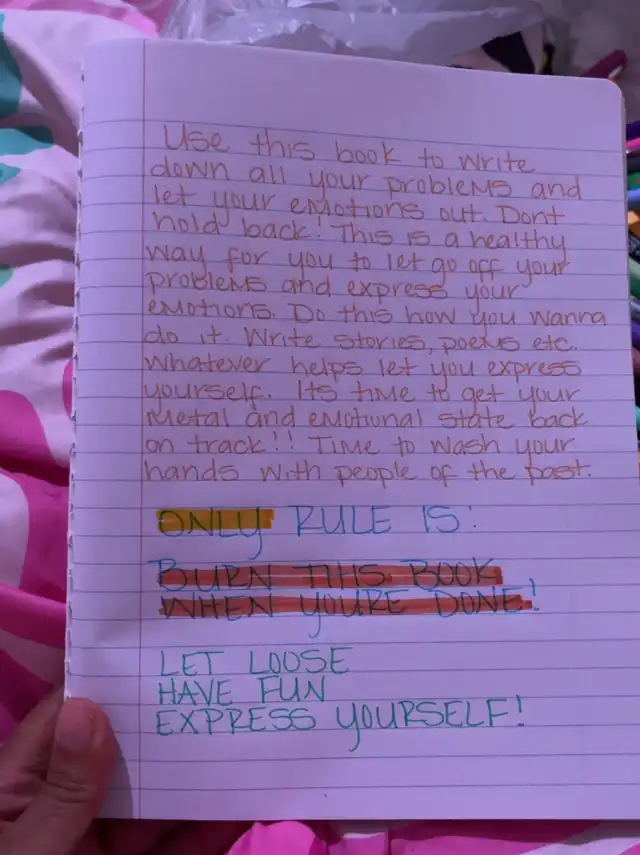 Use this book to write
down all your problems and
let your emotions out. Dont
hold back! This is a healthy
way for you to let go off your
problems and express your
emotions. Do this how you wanna
do it. Write stories, poems etc.
Whatever helps let you express
yourself. Its time to get your
metal and emotional state back
on track!! Time to wash your
hands with people of the past.
ONLY RULE IS:
BURN TIHS BOOK
WHEN YOURE DONE!
LET LOOSE
HAVE FUN
EXPRESS YOURSELF!